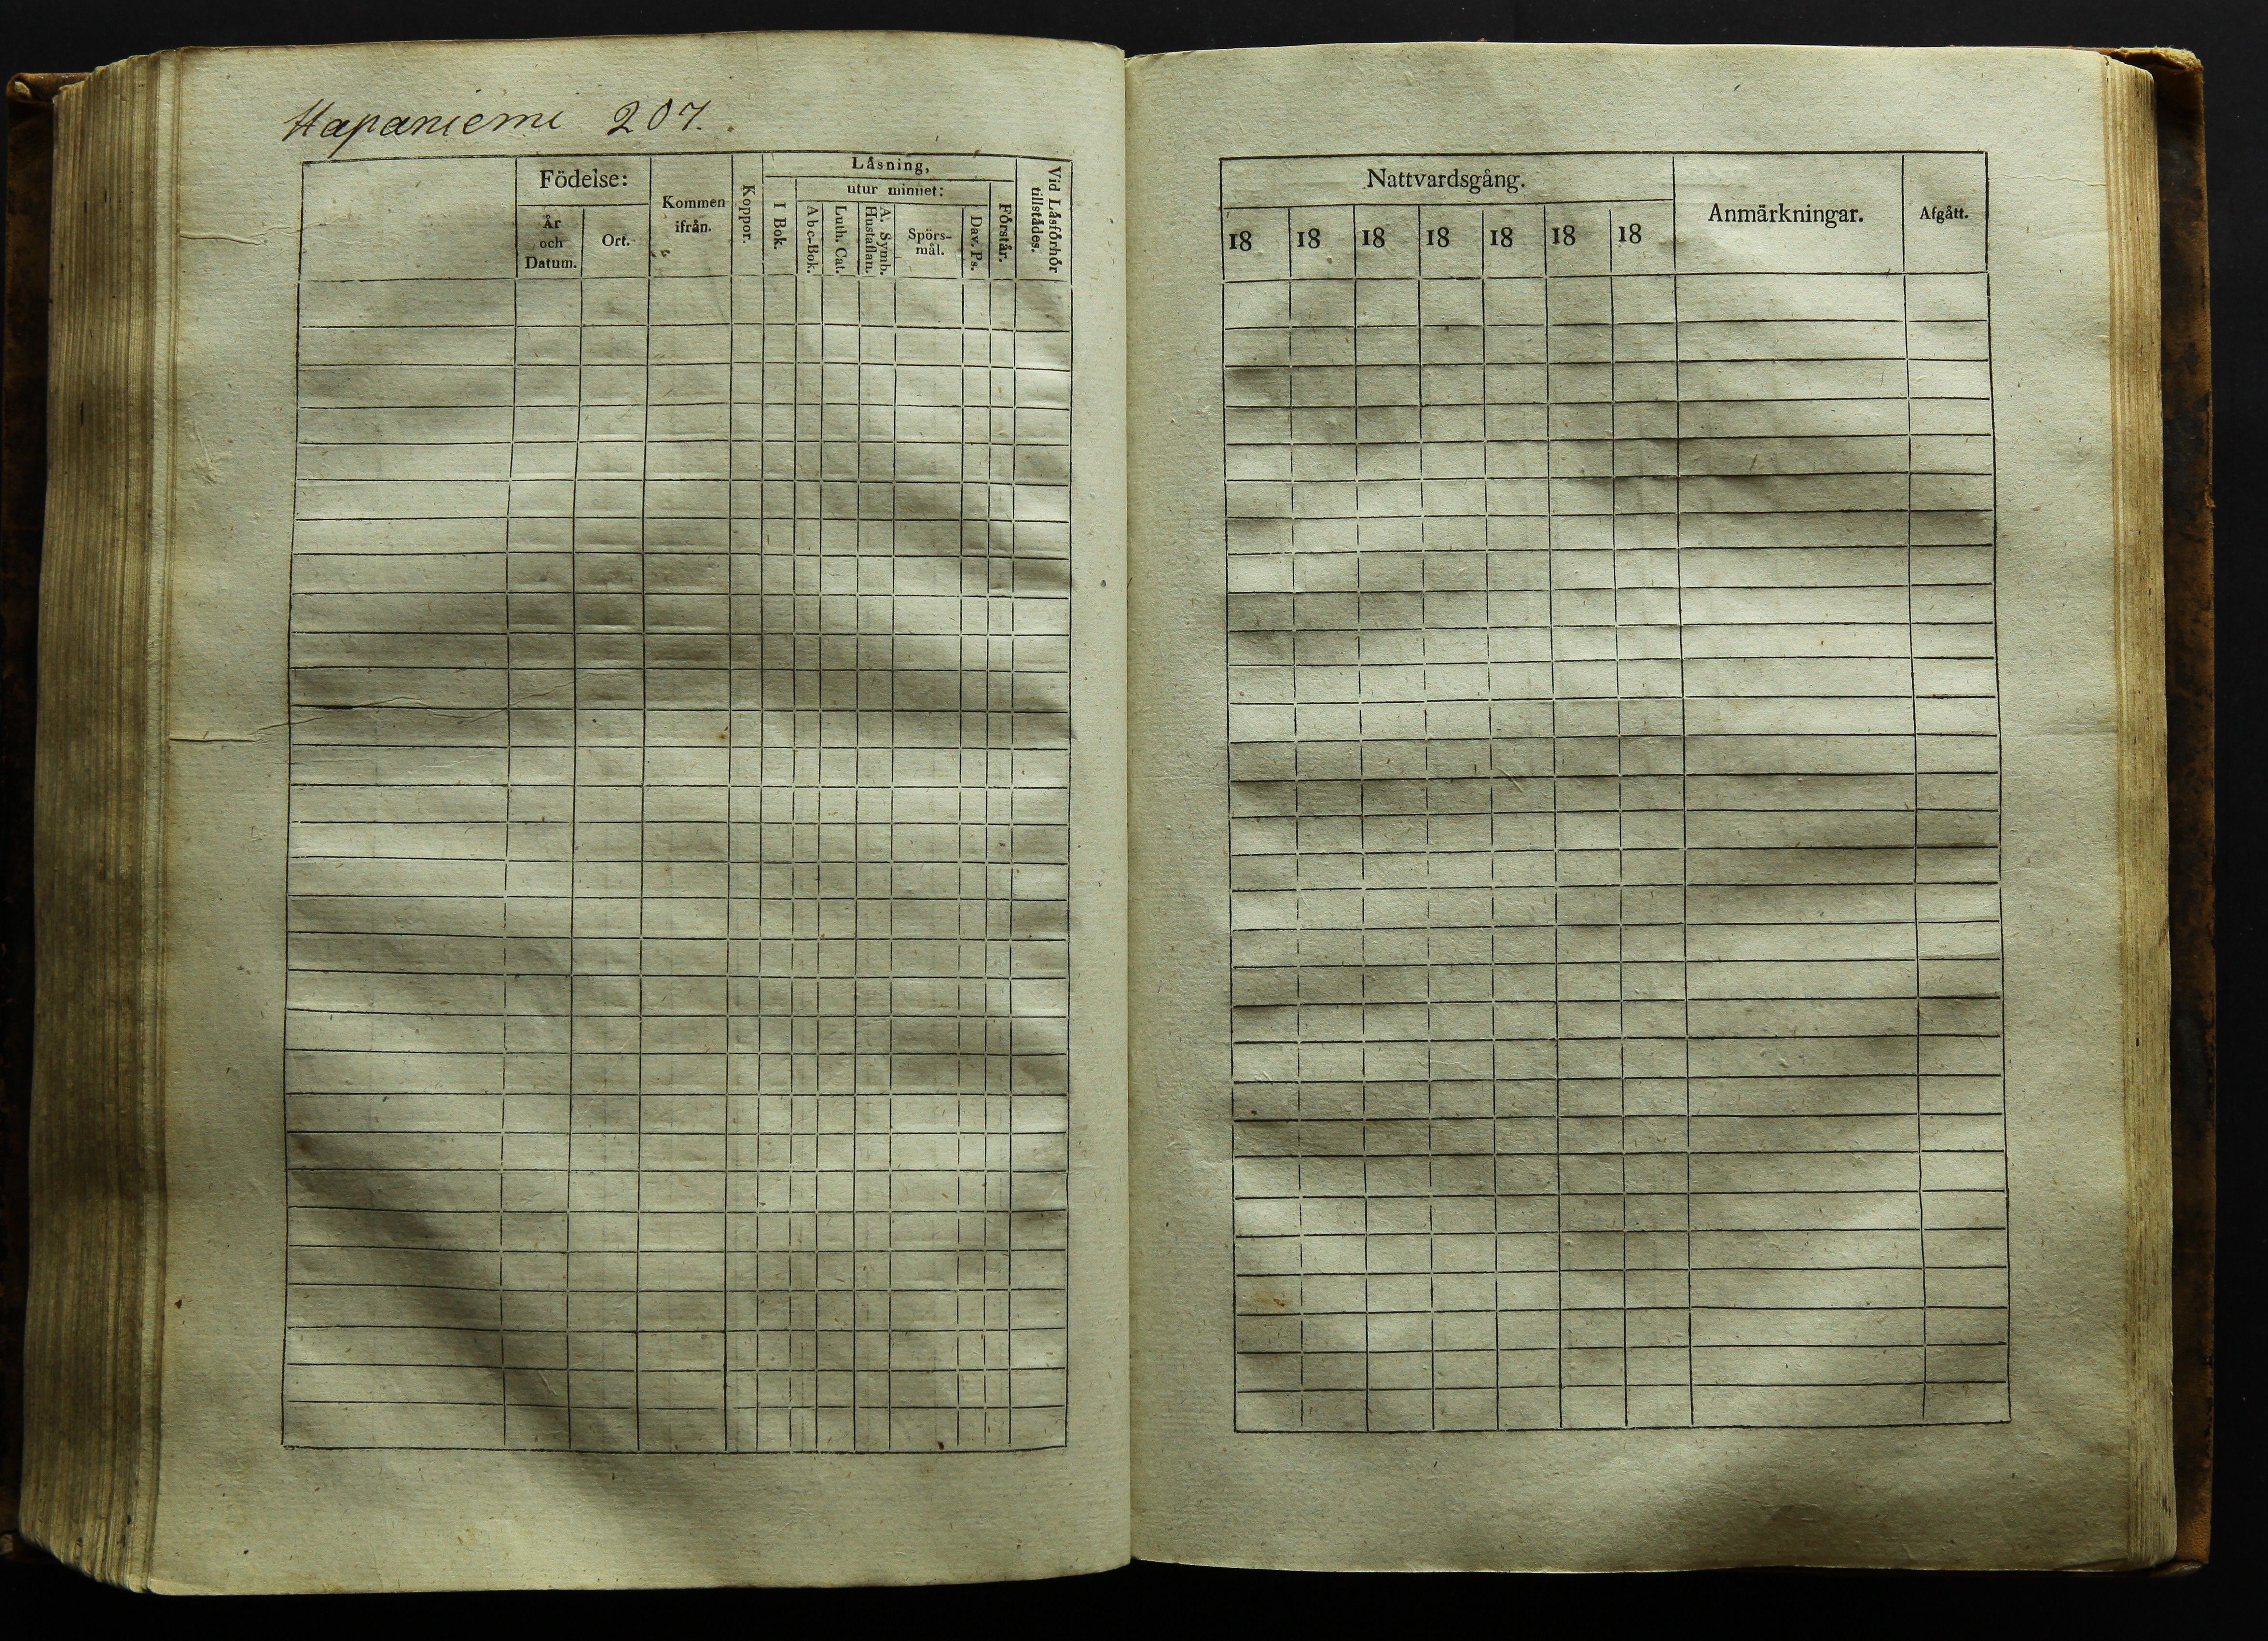 Hapaniemi 207.
Födelse:
År
och
Datum.
Ort.
Kommen
ifrån.
Koppor.
Låsning,
utur minnet:
I Bok.
Abc-Bok.
Luth. Cat.
A. Symb.
Hustaflan.
Spörs-
mål.
Dav. Ps.
Förstår.
Vid Låsförhör
tillstådes.
Nattvardsgång.
18 18 18 18 18 18 18
Anmärkningar.
Afgått.